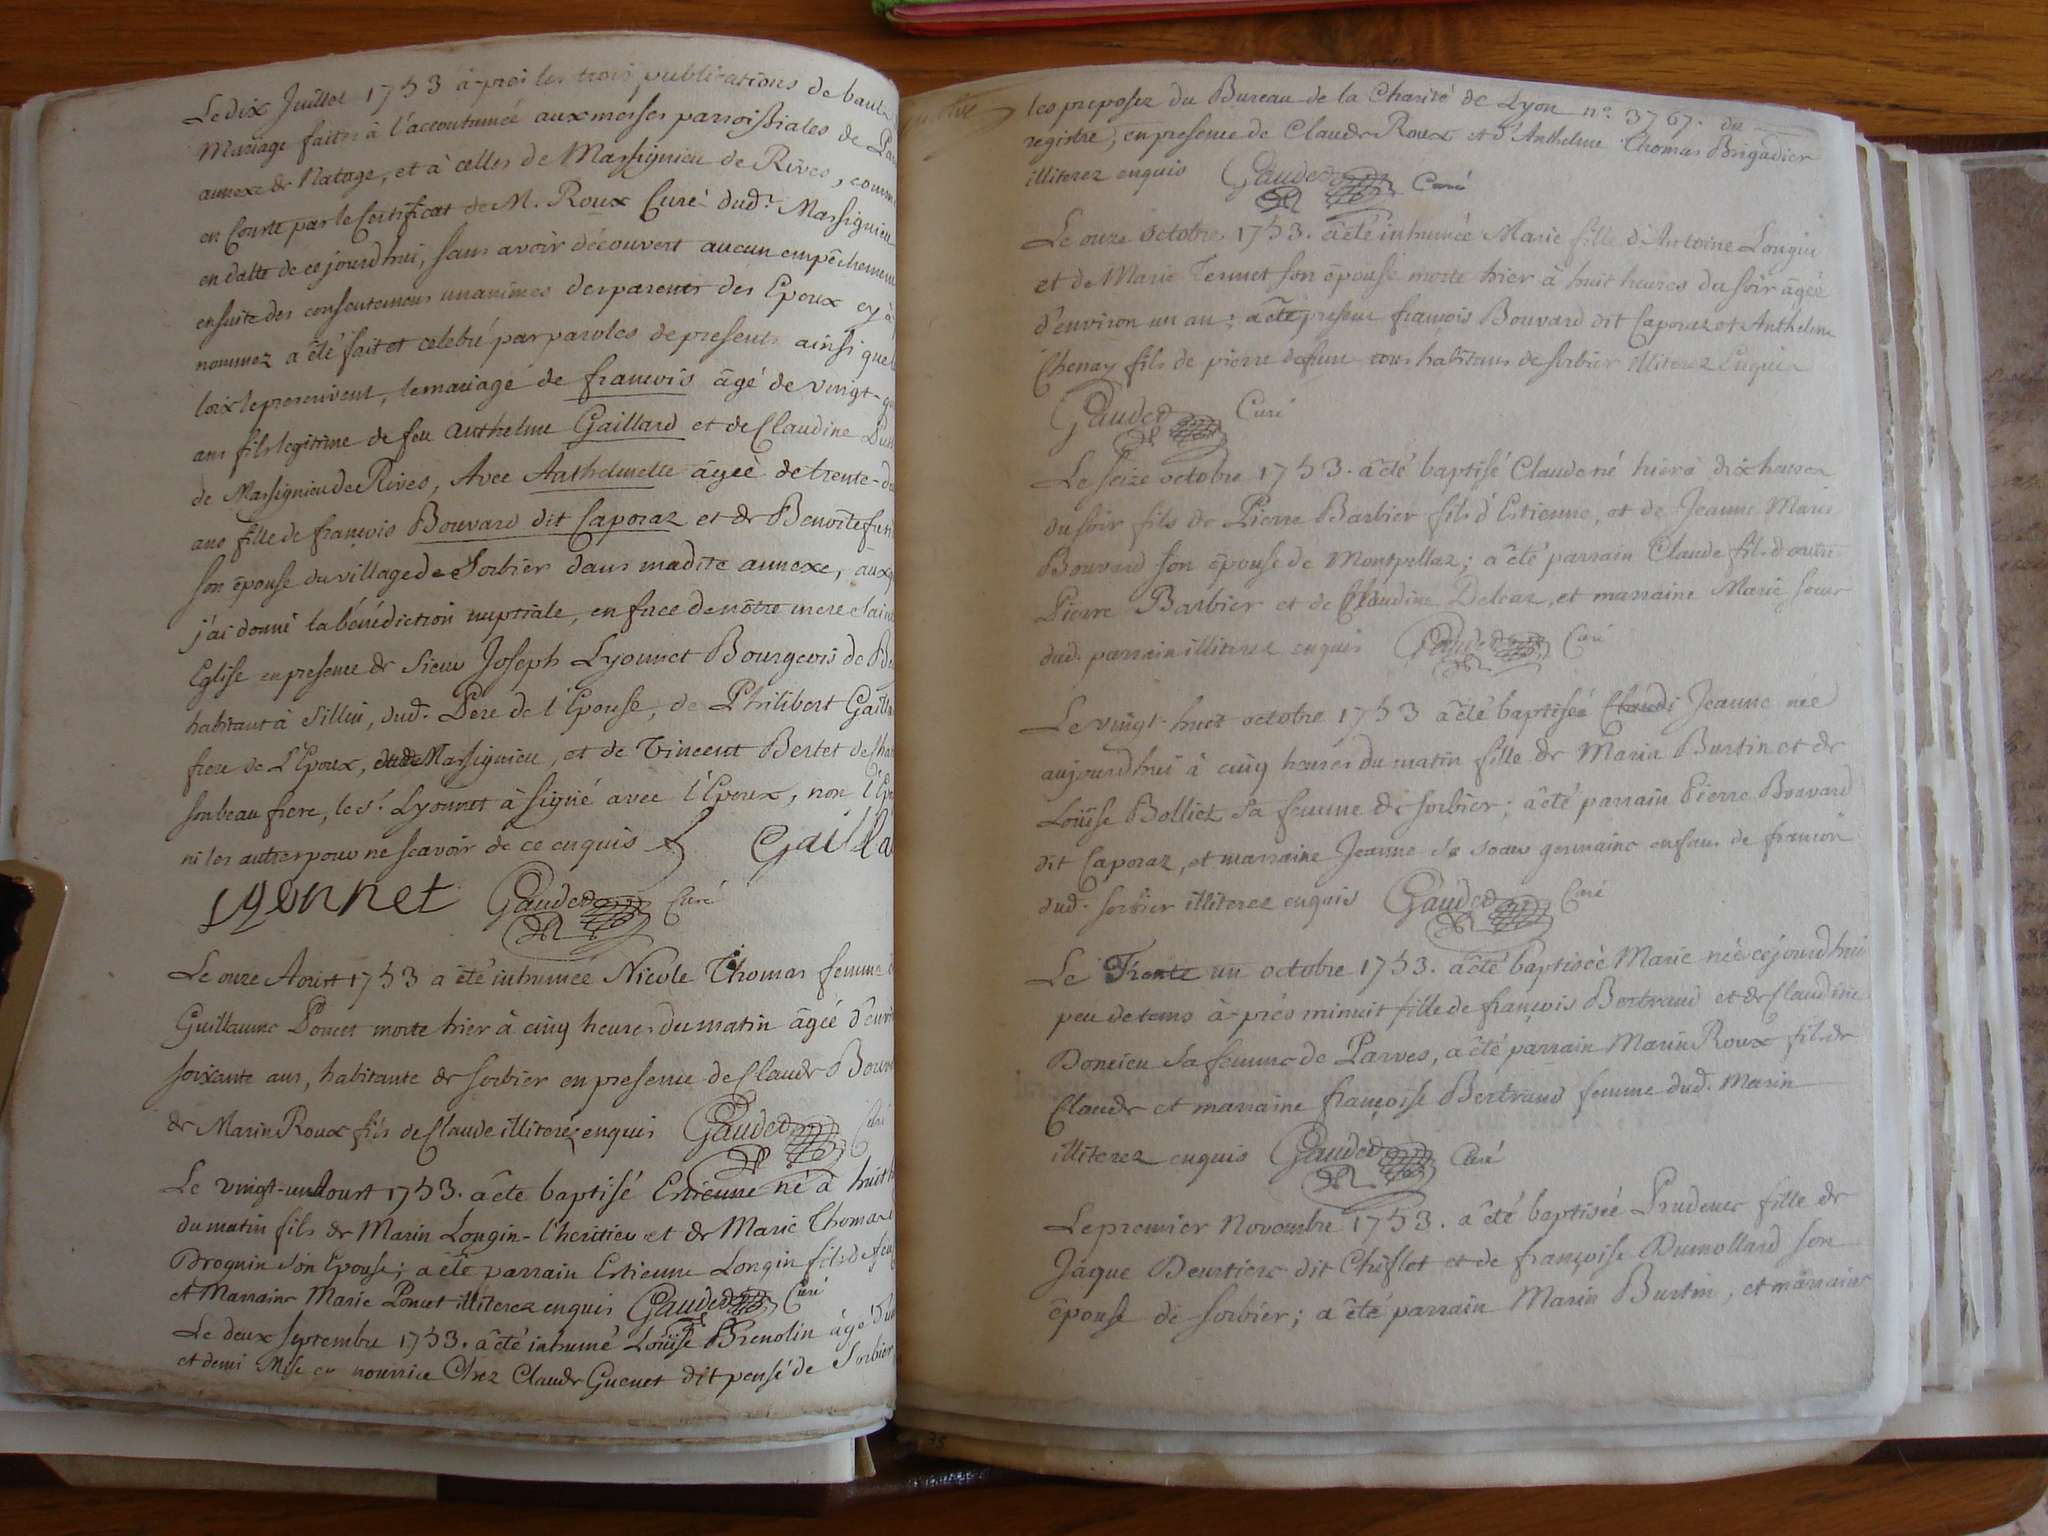 Le dix Juillet 1753 à-près les trois publications de
Mariage faites à l'accoutumée aux messes parroissiales de
annexe de Natage, et à celles de Massignieu de Rives,
en Conste par le Certificat de M. Roux Curé dud.t Massignieu
en datte de cejourdhui, sans avoir découvert aucun empêchement
ensuite des consentemens unanimes des parents des Epoux cy à
nommez a été fait et celebré par paroles de presents ainsi que
loix le prescrivent, le mariage de francois âgé de vingt-
ans fils legitime de feu Anthelme Gaillard et de Claudine
de Massignieu de Rives, Avec Anthelmette âgeè de trente-
ans fille de francois Bouvard dit Caporaz et de Benoite
son épouse du village de Sorbier dans madite annexe,
j'ai donné la bénédiction nuptiale, en face de nôtre mere
Eglise en presence de Sieur Joseph Lyonnet Bourgeois de
habitant à Sillin, dud. Pere de l'Epouse, de Philibert
frere de L'Epoux, dud Massignieu, et de Vincent Bertet
son beau frere, le sr. Lyonnet à signé avec l'Epoux, non
ni les autres pour ne scavoir de ce enquis
lyonnet Gaudet Curé
Le onze Aoust 1753 a été inhumée Nicole Thomas femme
Guillaume Poncet morte hier à cinq heures du matin âgée
soixante ans, habitante de Sorbier en presence de Claude
de Marin Roux fils de Claude illiterez enquis Gaudet Curé
Le vingt-un Aoust 1753. a été baptisé Estienne né à huit
du matin fils de Marin Longin-l'heritier et de Marie Thomas
Drognin son Epouse; a été parrain Estienne Longin fils de feu
et Marraine Marie Poncet illiterez enquis Gaudet Curé
Le deux septembre 1753. a été inhumé Loüise Brenolin âgé
et demi Mise en nourrice Chez Claude Guenet dit pensé de Sorbier
les preposez du Bureau de la Charité de Lyon no. 3767. du
registre, en presence de Claude Roux et d'Anthelme Thomas Brigadier
illiterez enquis Gaudet Curé
Le onze Octobre 1753. a été inhumée Marie fille d'Antoine Longin
et de Marie Tennet son épouse morte hier à huit heures du soir âgée
d'environ un an; a été presens francois Bouvard dit Caporaz et Anthelme
Chenay fils de pierre defunt tous habitans de sorbier illiterez Enquis
Gaudet Curé
Le seize octobre 1753. a été baptisé Claude né hier à dix heures
du soir fils de Pierre Barbier fils d'Estienne, et de Jeanne Marie
Bouvard son épouse de Montpellaz; a été parrain Claude fils d'autre
Pierre Barbier et de Claudine Delraz, et marraine Marie soeur
dud. parrain illiterez enquis Gaudet Curé
Le vingt-huit octobre 1753 a été baptisée Jeanne née
aujourdhui à cinq heures du matin fille de Marin Burtin et de
Loüise Bolliet sa femme de sorbier; a été parrain Pierre Bouvard
dit Caporaz, et marraine Jeanne sa soeur germaine enfans de francois
dud. sorbier illiterez enquis Gaudet Curé
Le Trente un octobre 1753. a été baptisée Marie née cejourdhui
peu de tems à-près minuit fille de francois Bertrand et de Claudine
Doncieu sa femme de Parves, a été parrain Marin Roux fils de
Claude et marraine francoise Bertrand femme dud. Marin
illiterez enquis Gaudet Curé
Le premier Novembre 1753. a été baptisée Prudence fille de
Jâque Deurtiere dit Chiflet et de francoise Dumollard son
épouse de sorbier; a été parrain Marin Burtin, et marraine